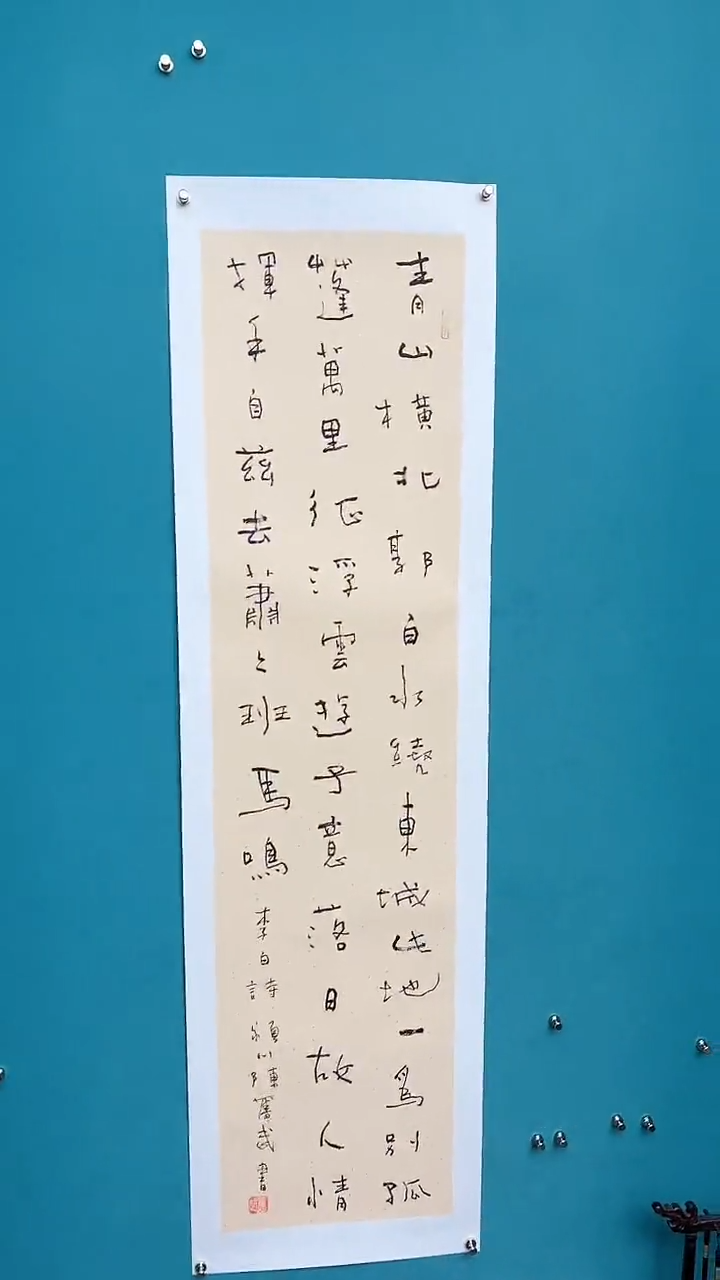 青山橫北郭白水繞東城此地一為別孤
蓬萬里征浮雲遊子意落日故人情
揮手自茲去蕭々班馬鳴 李白詩 潁川陳武書